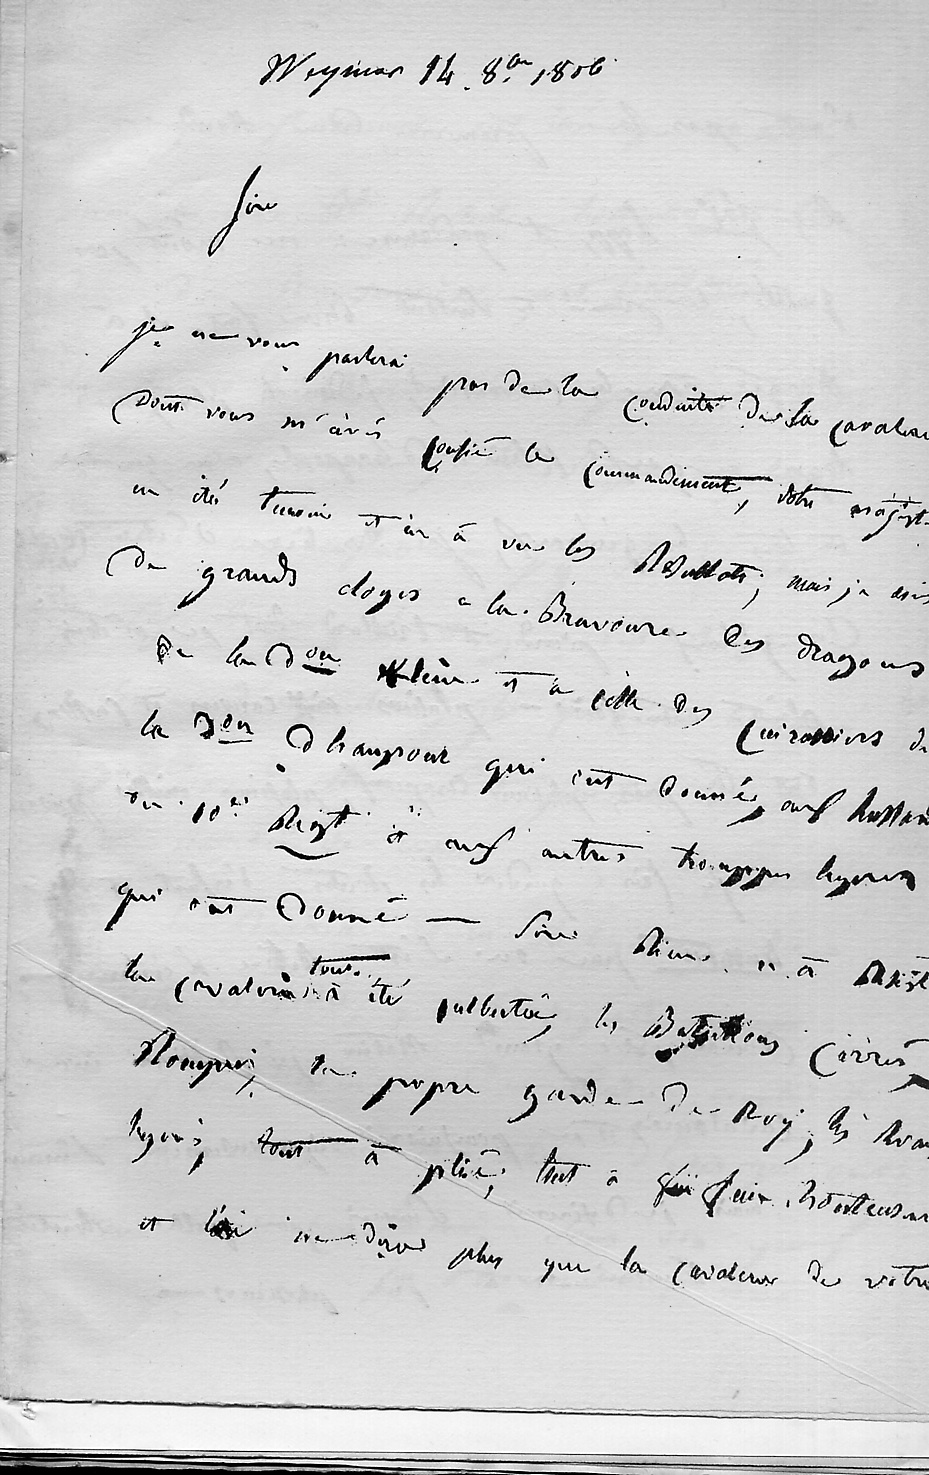 Weymar 14. 8bre 1806
Sire
je ne vous parlerai pas de la conduite de la cavalerie
dont vous m'avés confié le commandement, votre majest
en été temoin et en à vu les Resultats; mais je dois
de grands eloges a la Bravoure des dragons
de la Don Klein et a celle des Cuirassiers de
la Don d'haupoul qui ont donné, aux hussards
du 10e Regt et aux autres trouppes legeres
qui ont donné — Sire Rien n'a Resist
la cavalerie tout à été culbutée, les Bataillons Carrés
Rompus, la propre garde du Roy, les
tout à plié, tout a fui honteusement
et ne dira plus que la cavalerie de votre